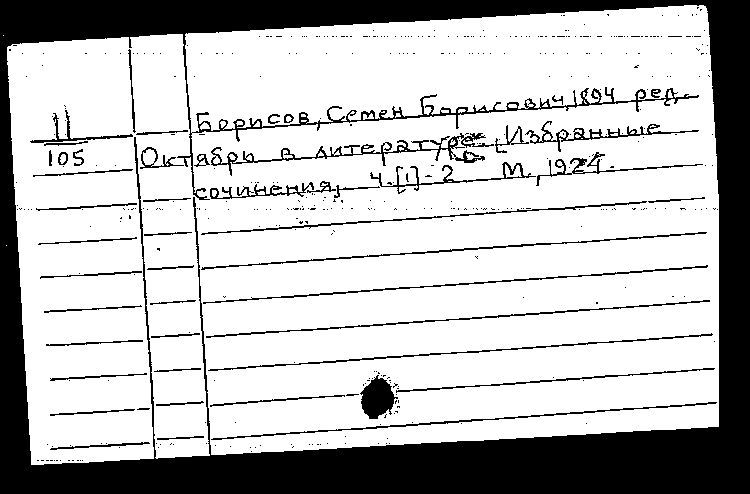 11
105
Борисов, Семен Борисович, 1894 ред.
Октябрь в литературе. Избранные
сочинения, ч.[1]-2 М.,